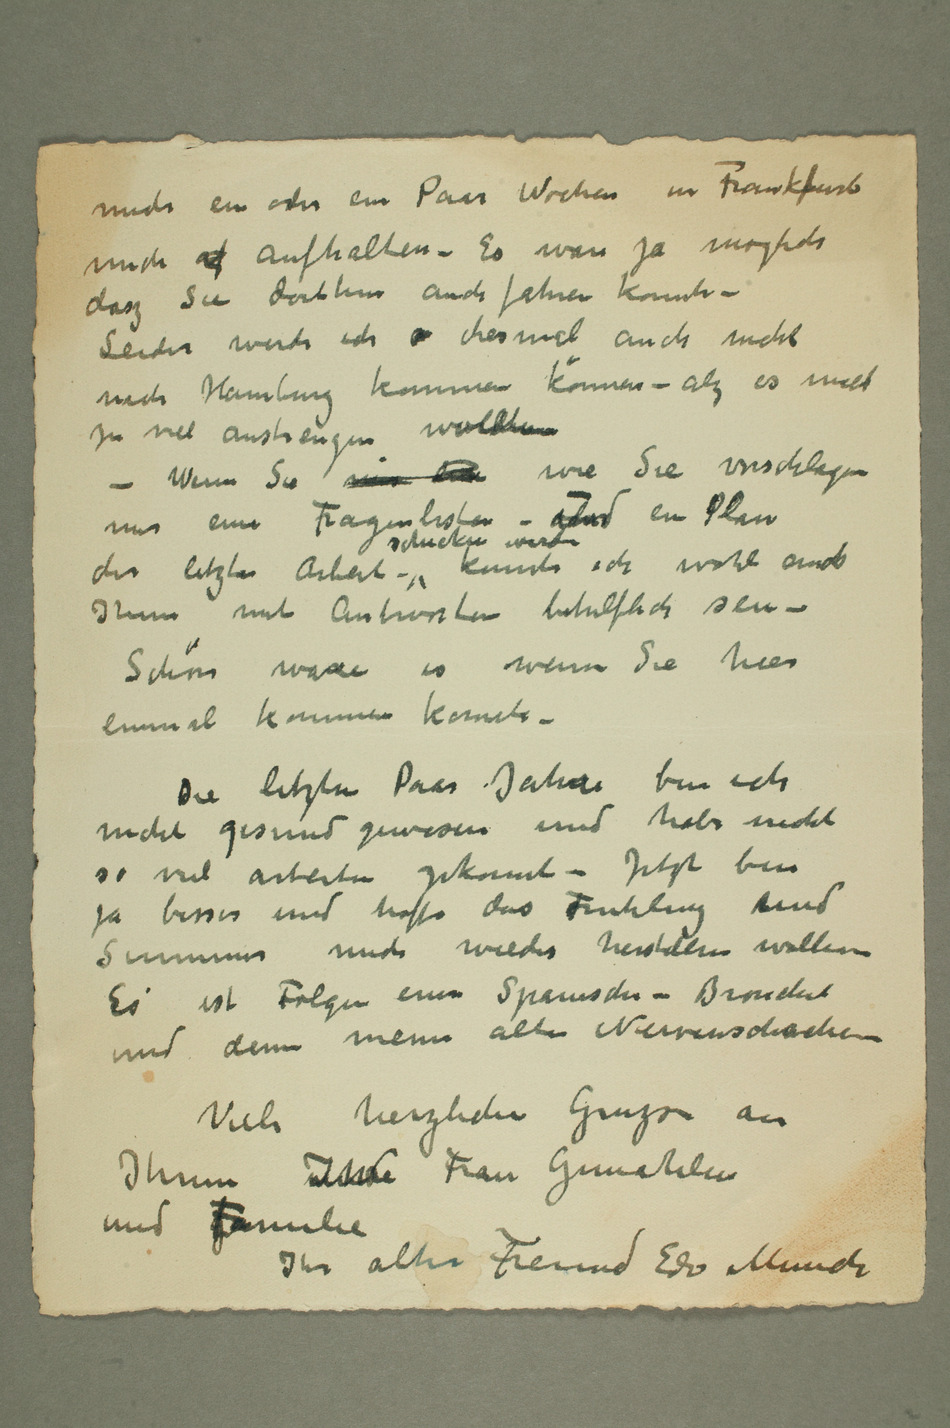 mich ein oder ein Paar Wochen in Frankfurt
mich aufhalten – Es wäre ja möglich
dasz Sie dorthin auch fahren konnte –
Leider werde ich diesmal auch nicht
nach Hamburg kommen können – als es mich
zu viel anstrengen wollten
– Wenn Sie wie Sie vorschlagen
mir eine Fragenliste – und ein Plan
der letzte Arbeit – schicken werde konnte ich wohl auch
Ihnen mit Antworten behilflich sein –
Schön wäre es wenn Sie hier
einmal kommen konnte –
Die letzten Paar Jahre bin ich
nicht gesund gewesen und habe nicht
so viel arbeiten gekonnt – Jetzt bin
ja besser und hoffe das Frühling und
Sommer mich wieder herstellen wollen
Es ist Folgen einer Spanischen – Bronchit
und denn meine alte Nervenschwäche –
Viele herzliche Grüsze an
Ihrem Frau Gemahlin
und Familie
Ihr alter Freund Edv Munch